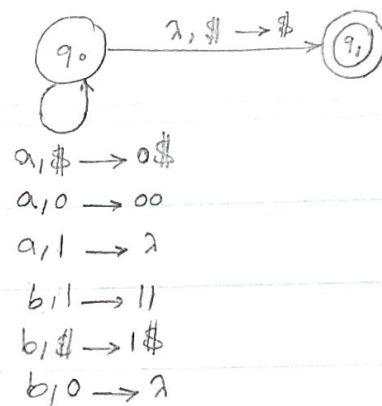 λ, $ → $
q₀
q₁
a, $ → 0$
a, 0 → 00
a, 1 → λ
b, 1 → 11
b, $ → 1$
b, 0 → λ